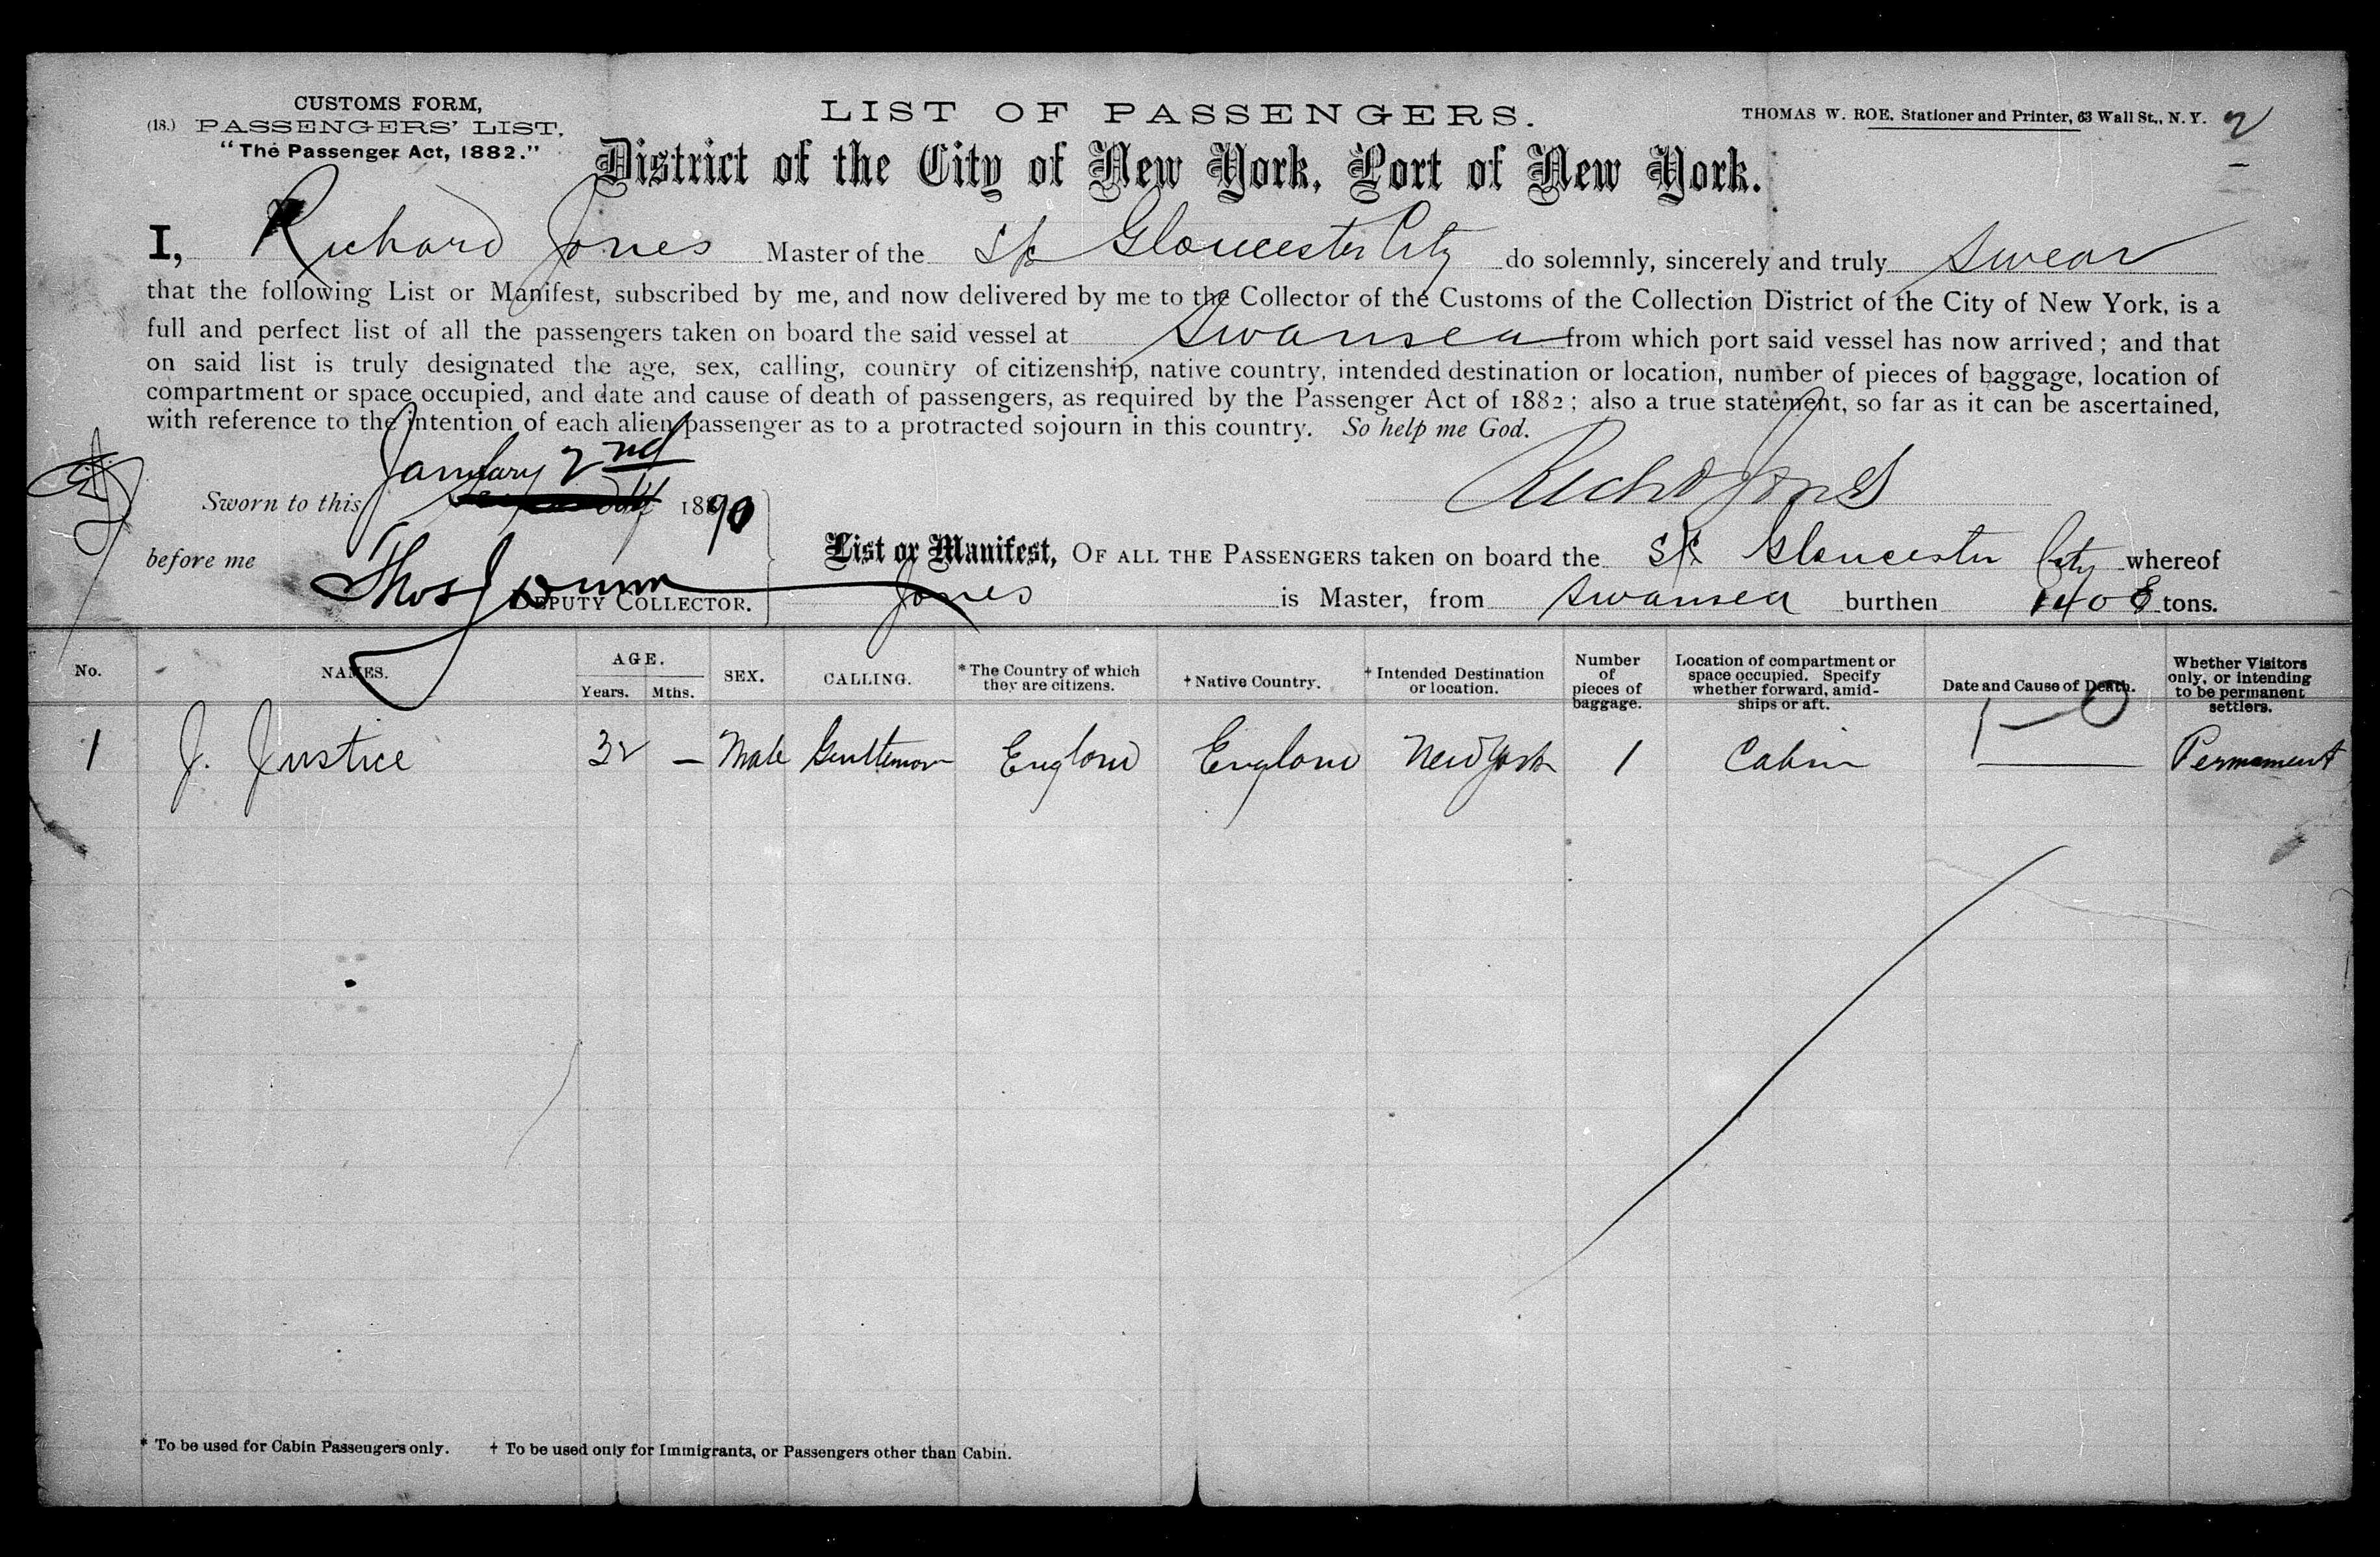 CUSTOMS FORM,
(18.) PASSENGERS' LIST,
"The Passenger Act, 1882."
LIST OF PASSENGERS.
THOMAS W. ROE, Stationer and Printer, 63 Wall St., N. Y. 2
District of the City of New York, Port of New York.
I, Richard Jones Master of the S/S Gloucester City do solemnly, sincerely and truly swear
that the following List or Manifest, subscribed by me, and now delivered by me to the Collector of the Customs of the Collection District of the City of New York, is a
full and perfect list of all the passengers taken on board the said vessel at Swansea from which port said vessel has now arrived; and that
on said list is truly designated the age, sex, calling, country of citizenship, native country, intended destination or location, number of pieces of baggage, location of
compartment or space occupied, and date and cause of death of passengers, as required by the Passenger Act of 1882; also a true statement, so far as it can be ascertained,
with reference to the intention of each alien passenger as to a protracted sojourn in this country. So help me God.
January 2nd
Richd Jones
Sworn to this 1890
before me Thos Dunn
DEPUTY COLLECTOR.
List or Manifest, OF ALL THE PASSENGERS taken on board the S/S Gloucester City whereof
Jones is Master, from Swansea burthen 1408 tons.
No. NAMES. AGE. Years. Mths. SEX. CALLING. *The Country of which they are citizens. †Native Country. †Intended Destination or location. Number of pieces of baggage. Location of compartment or space occupied. Specify whether forward, amidships or aft. Date and Cause of Death. Whether Visitors only, or intending to be permanent settlers.
1—0
1 J. Justice 32 — Male Gentleman England England New York 1 Cabin — Permament
* To be used for Cabin Passengers only. † To be used only for Immigrants, or Passengers other than Cabin.